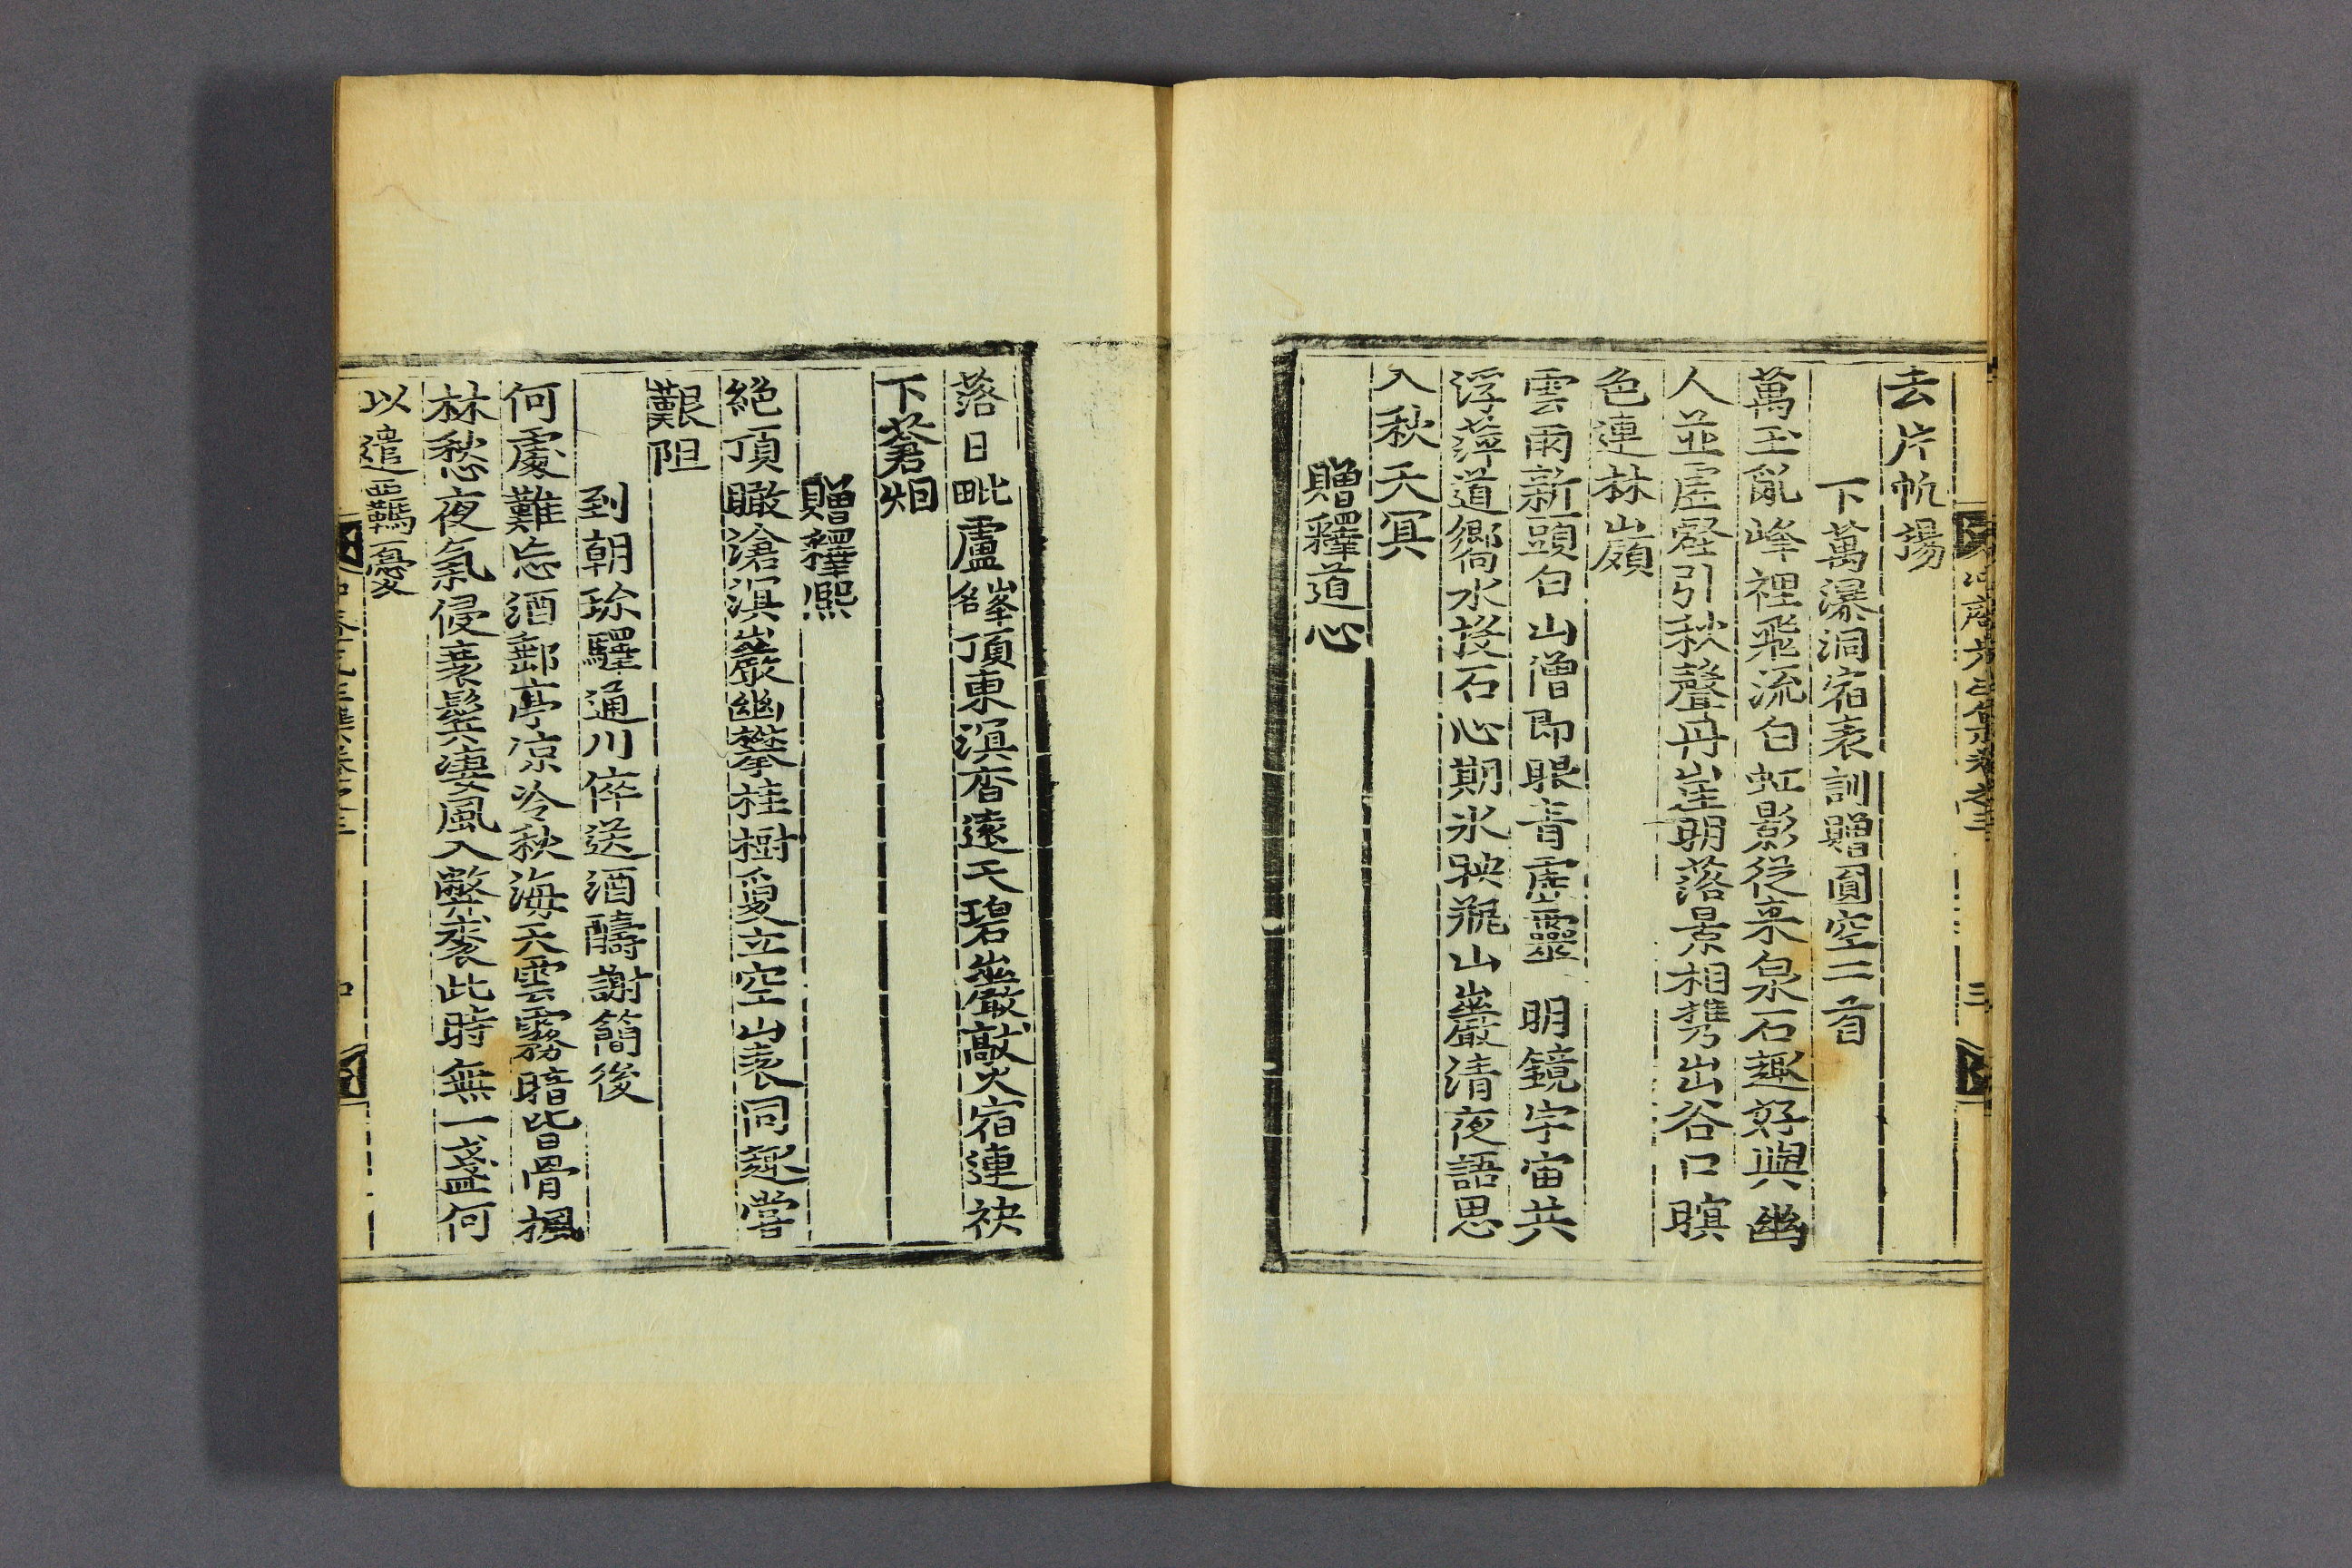 去片帆揚
下萬瀑洞宿表訓贈圓空二首
萬玉亂峰裡飛流白虹影從來泉石趣好與幽
人並虛壑引秋聲丹崖明落景相携出谷口暝
色連林嶺
雲雨新頭白山僧即眼青虛靈明鏡宇宙共
浮萍道鄕水投石心期氷映甁山巖清夜語思
入秋天冥
贈釋道心
落日毗盧峰頂東溟杳遠天碧巖敲火宿連袂
下蒼烟
贈釋熙
絕頂瞰滄溟巖幽攀桂樹爰立空山表同趣嘗
艱阻
到朝珍驛通川倅送酒醻謝簡後
何處難忘酒郵亭凉冷秋海天雲霧暗皆骨楓
林愁夜氣侵衰鬂凄風入弊裘此時無一盞何
以遣羈憂